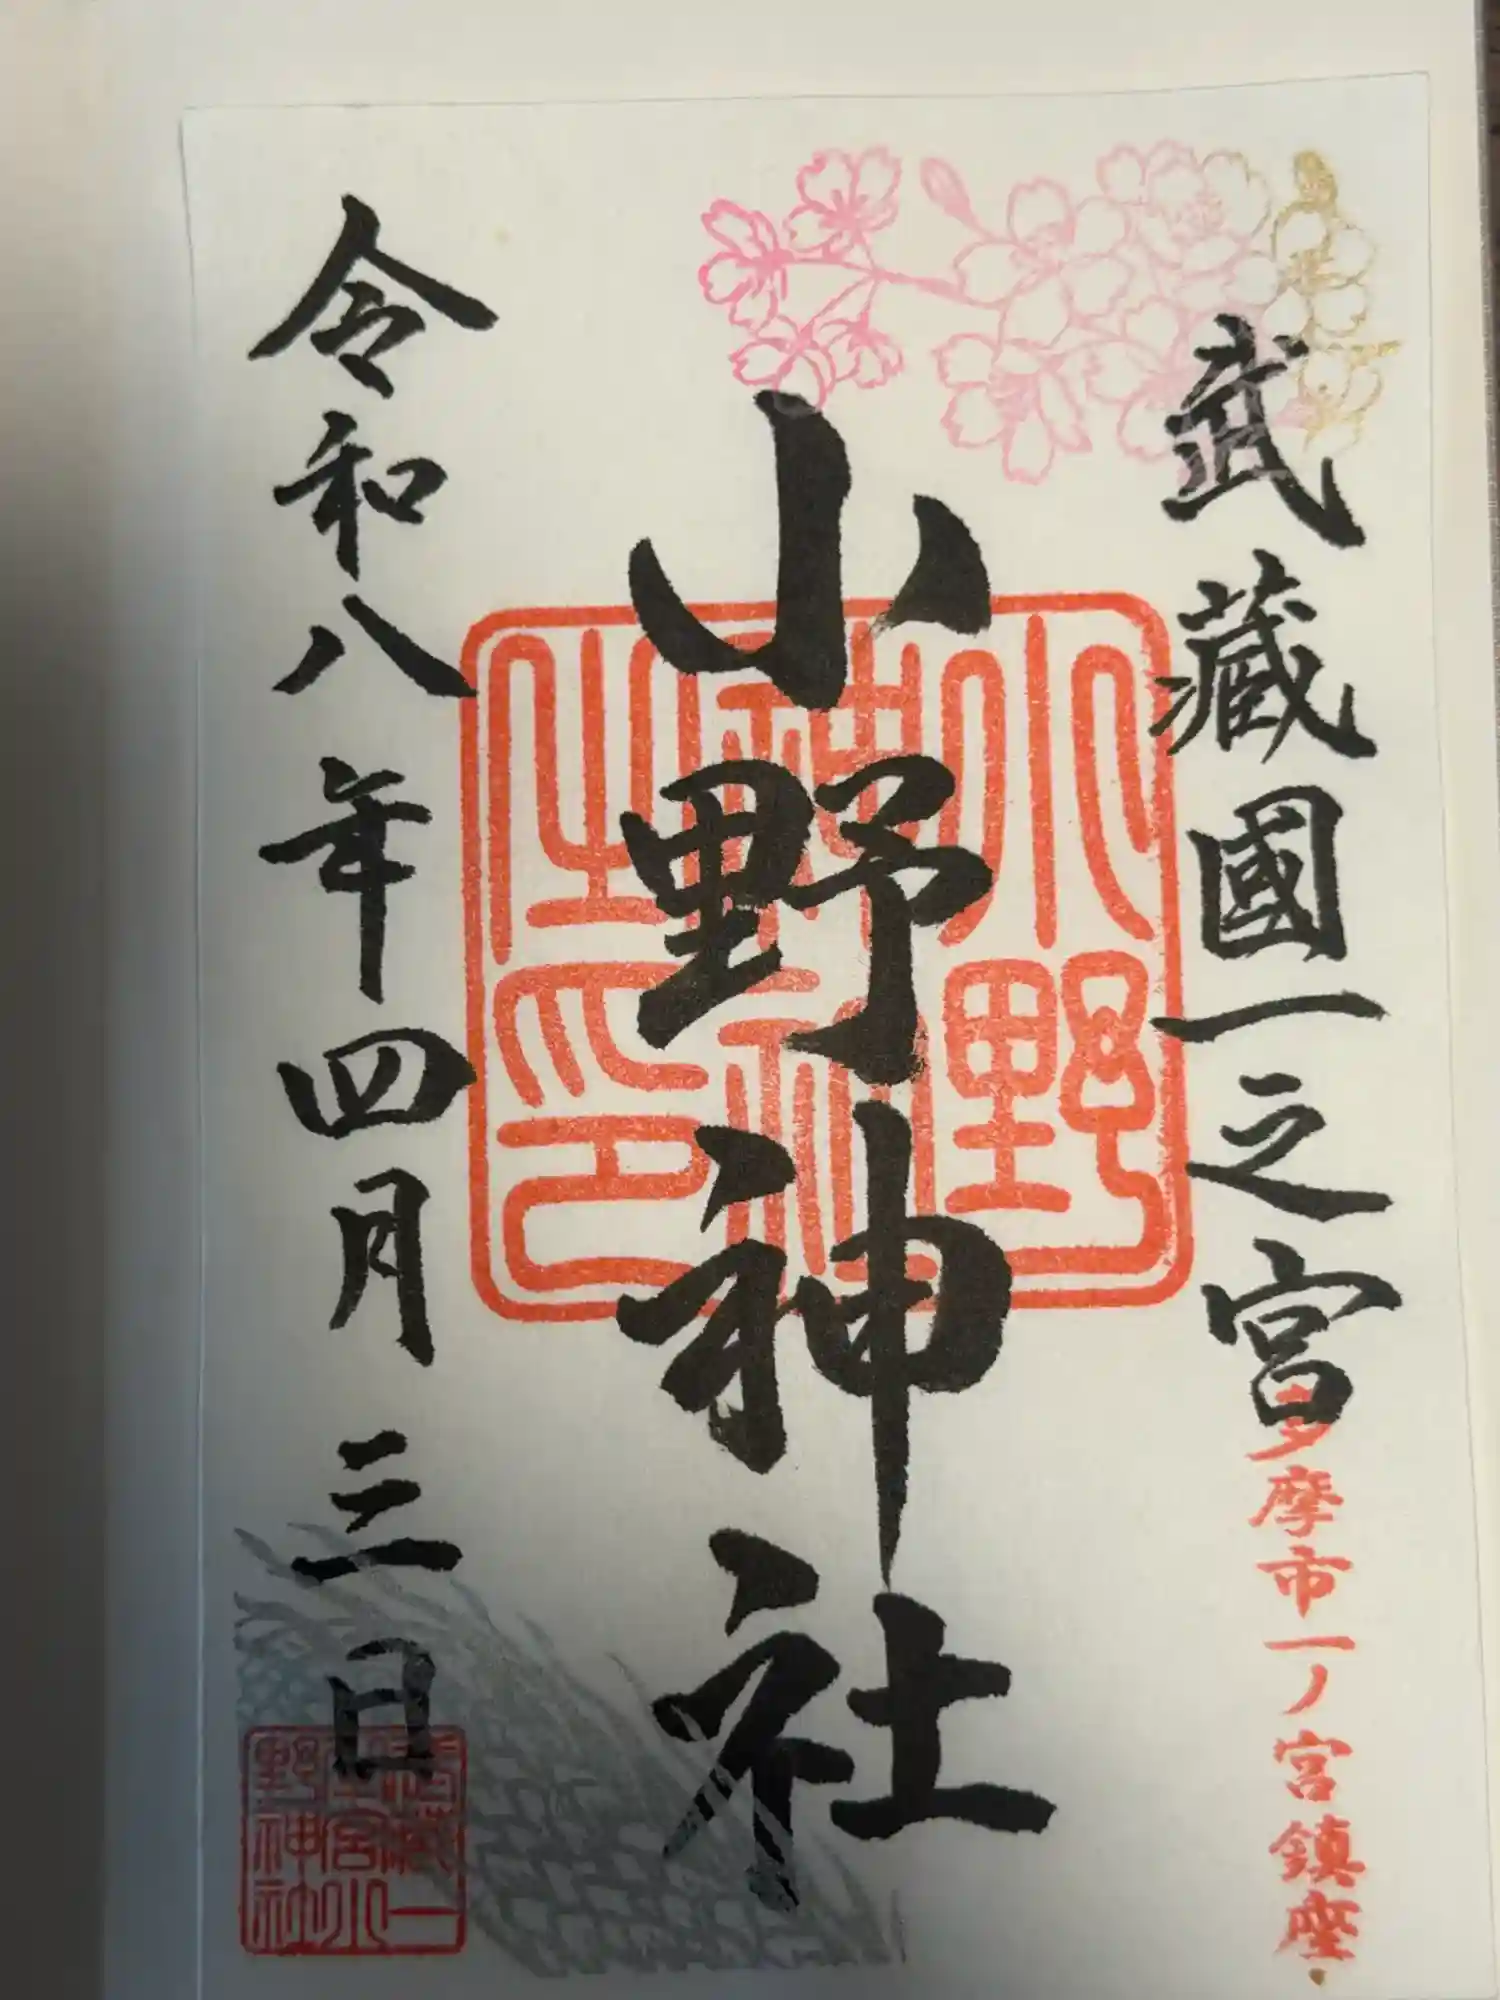 武藏國一之宮
多摩市一ノ宮鎮座
小野神社
小野神社之印
令和八年四月三日
武藏一之宮小野神社